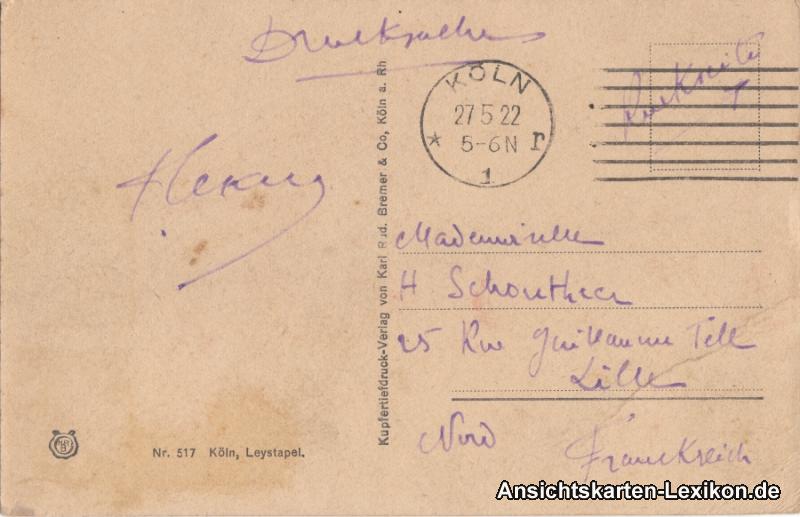 Drucksache
KÖLN
27 5 22
5-6 N
* r
1
Rückseite
Mademoiselle
H Schoutheer
25 Rue Guillaume Tell
Lille
Nord Frankreich
Kupfertiefdruck-Verlag von Karl Rud. Bremer & Co, Köln a. Rh
Nr. 517 Köln, Leystapel.
Ansichtskarten-Lexikon.de